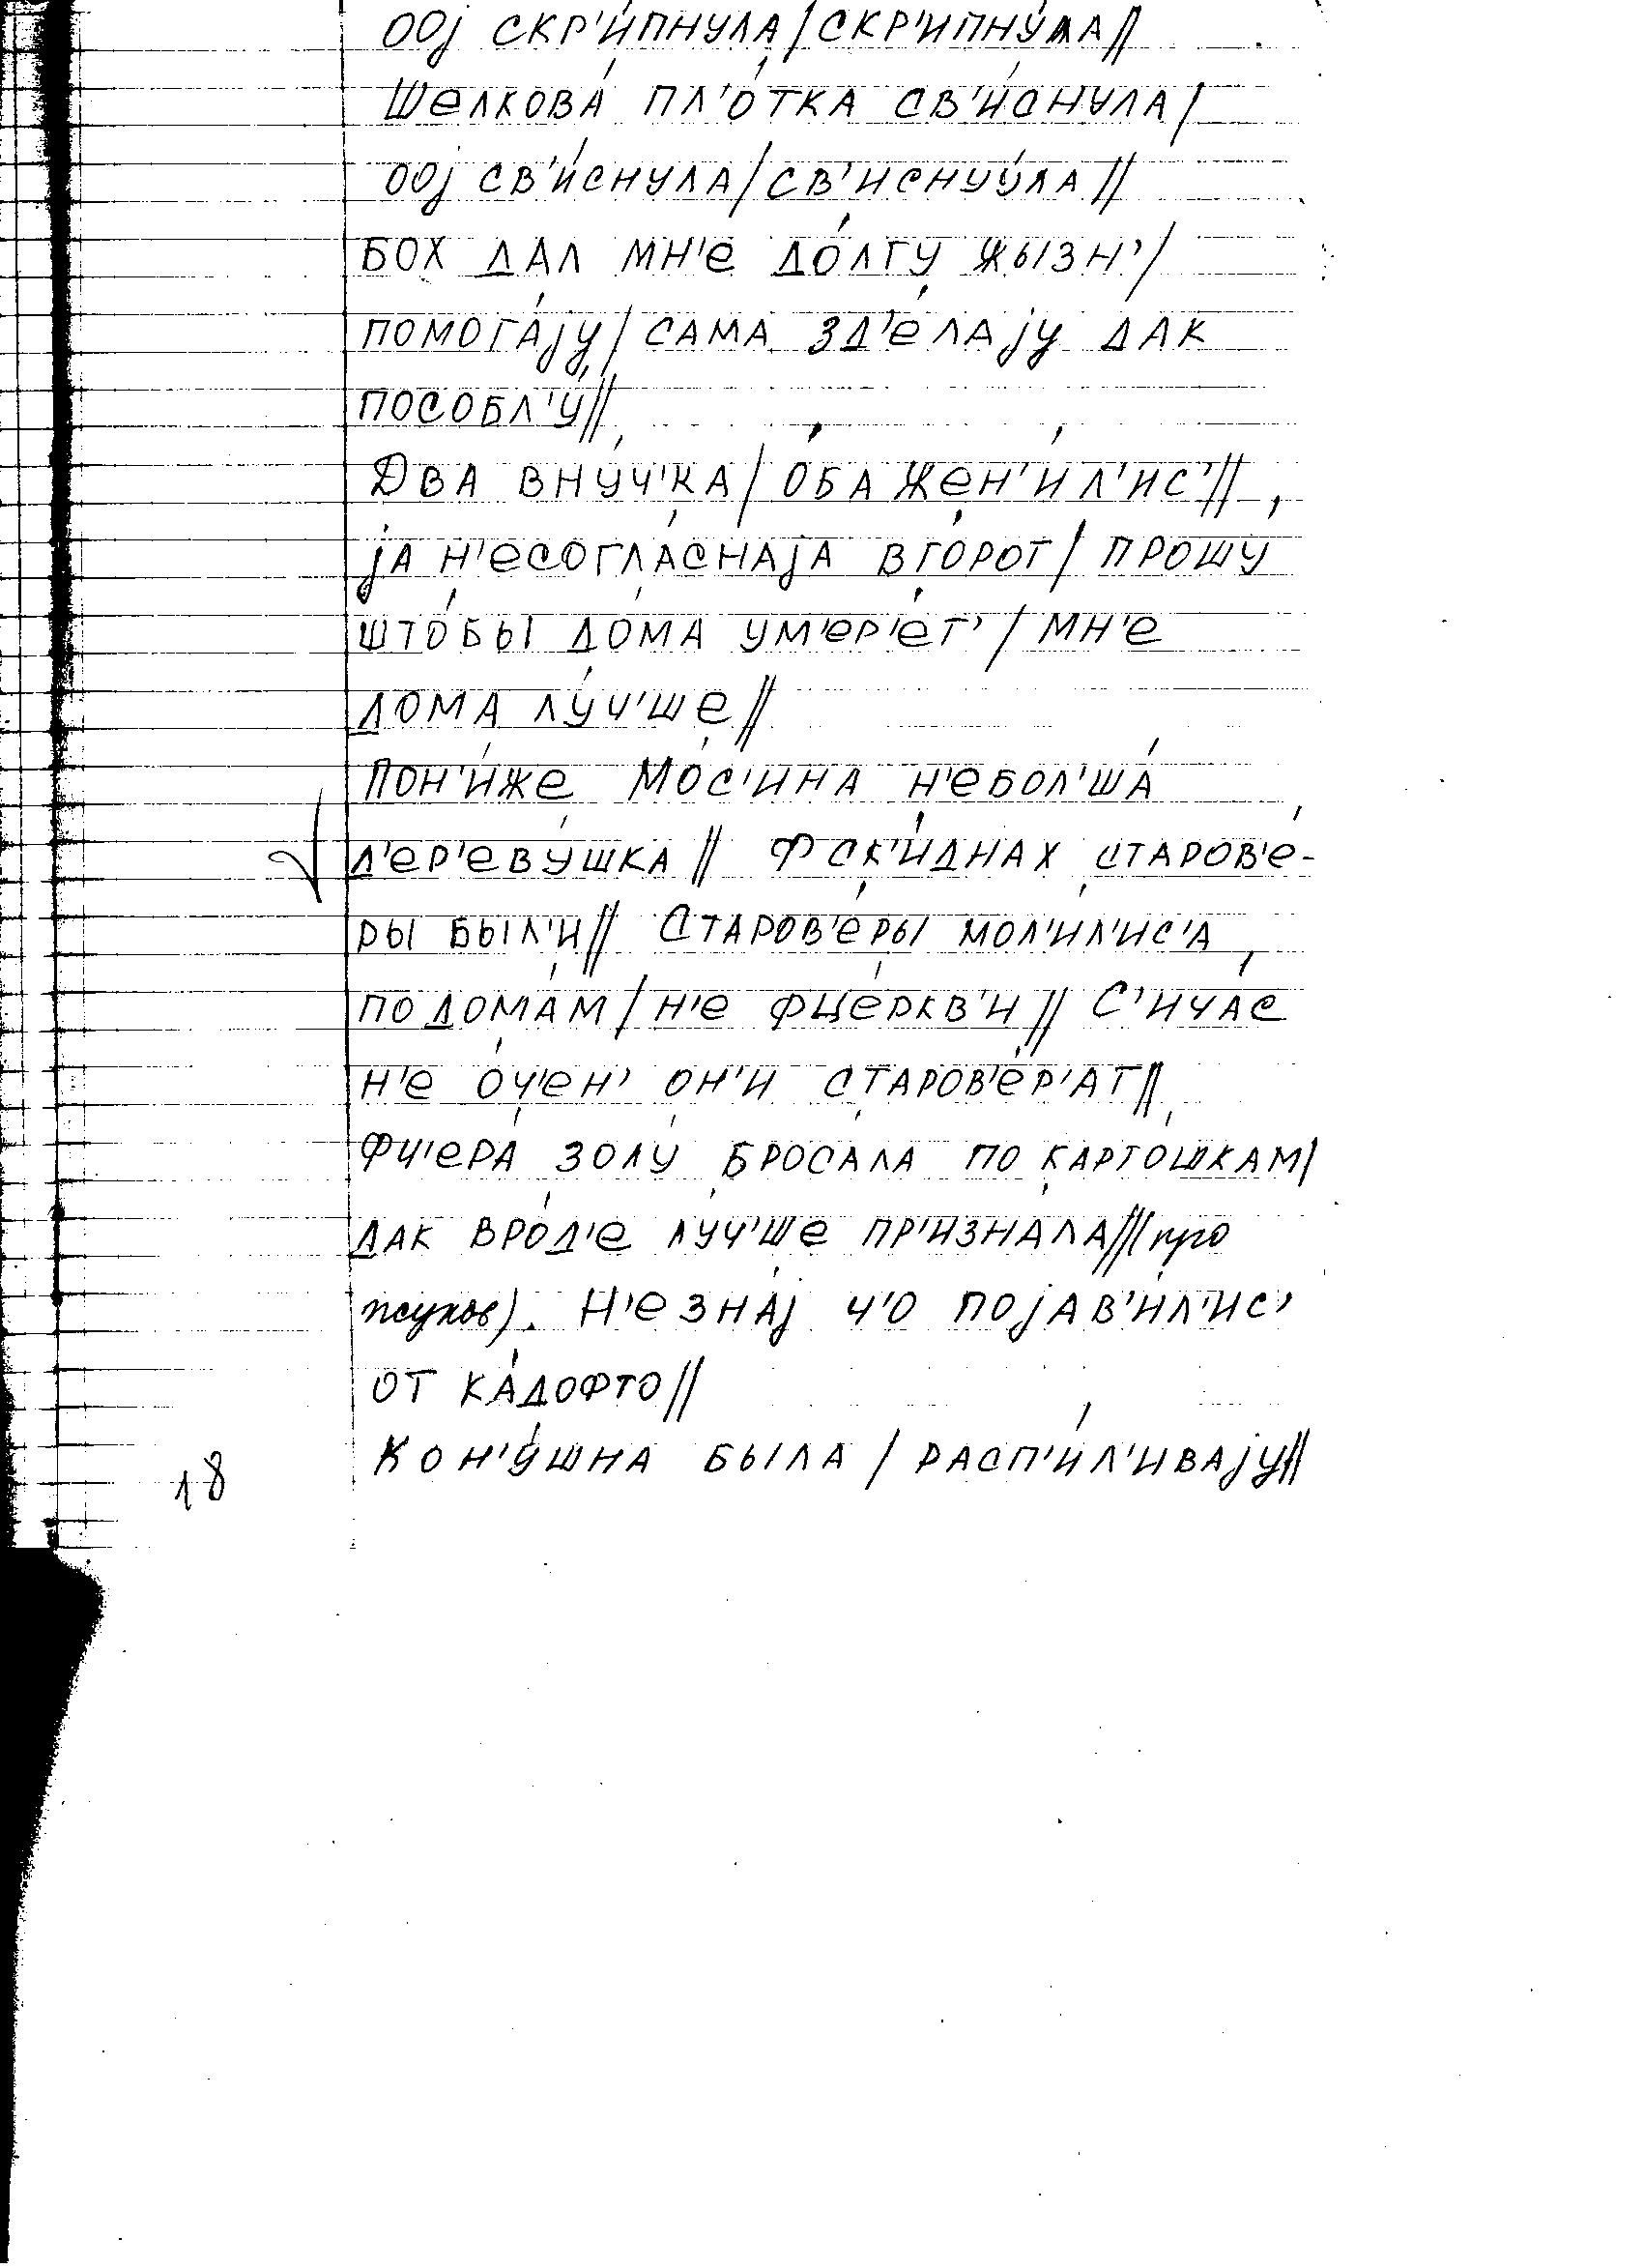 ООј СКР'И́ПНУЛА/СКР'ИПНУ́ЛА//
ШеЛКОВА́ ПЛ'О́ТКА СВ'И́СНУЛА/
ООј СВ'И́СНУЛА/СВ'ИСНУУ́ЛА//
БОХ ДАЛ МН'е ДО́ЛГУ ЖЫЗН'/
ПОМОГА́јУ/САМА ЗД'е́ЛАјУ ДАК
ПОСОБЛ'У́//
ДВА ВНУ́Ч'КА/О́БА ЖеН'И́Л'ИС'//
јА Н'еСОГЛА́СНАјА ВГО́РОТ/ПРОШУ́
ШТО́БЫ ДО́МА УМ'еР'е́Т'/МН'е
ДОМА ЛУ́Ч'Ше//
ПОН'И́Же МО́С'ИНА Н'еБОЛ'ША́
Д'еР'еВУ́ШКА// ФСК'И́ДНАХ СТАРОВ'е́-
РЫ БЫЛ'И// СТАРОВ'е́РЫ МОЛ'И́Л'ИС'А
ПО ДОМА́М/Н'е ФЦе́РКВ'И// С'ИЧА́С
Н'е О́Ч'еН' ОН'И СТАРОВ'е́Р'АТ//
ФЧ'еРА́ ЗОЛУ́ БРОСА́ЛА ПО КАРТО́ШКАМ/
ДАК ВРО́Д'е ЛУ́Ч'Ше ПР'ИЗНА́ЛА//(про
жуков). Н'е ЗНА́ј Ч'О ПОјАВ'И́Л'ИС'
ОТ КА́ДОФТО//
18 КОН'У́ШНА БЫЛА́/РАСП'И́Л'ИВАјУ//